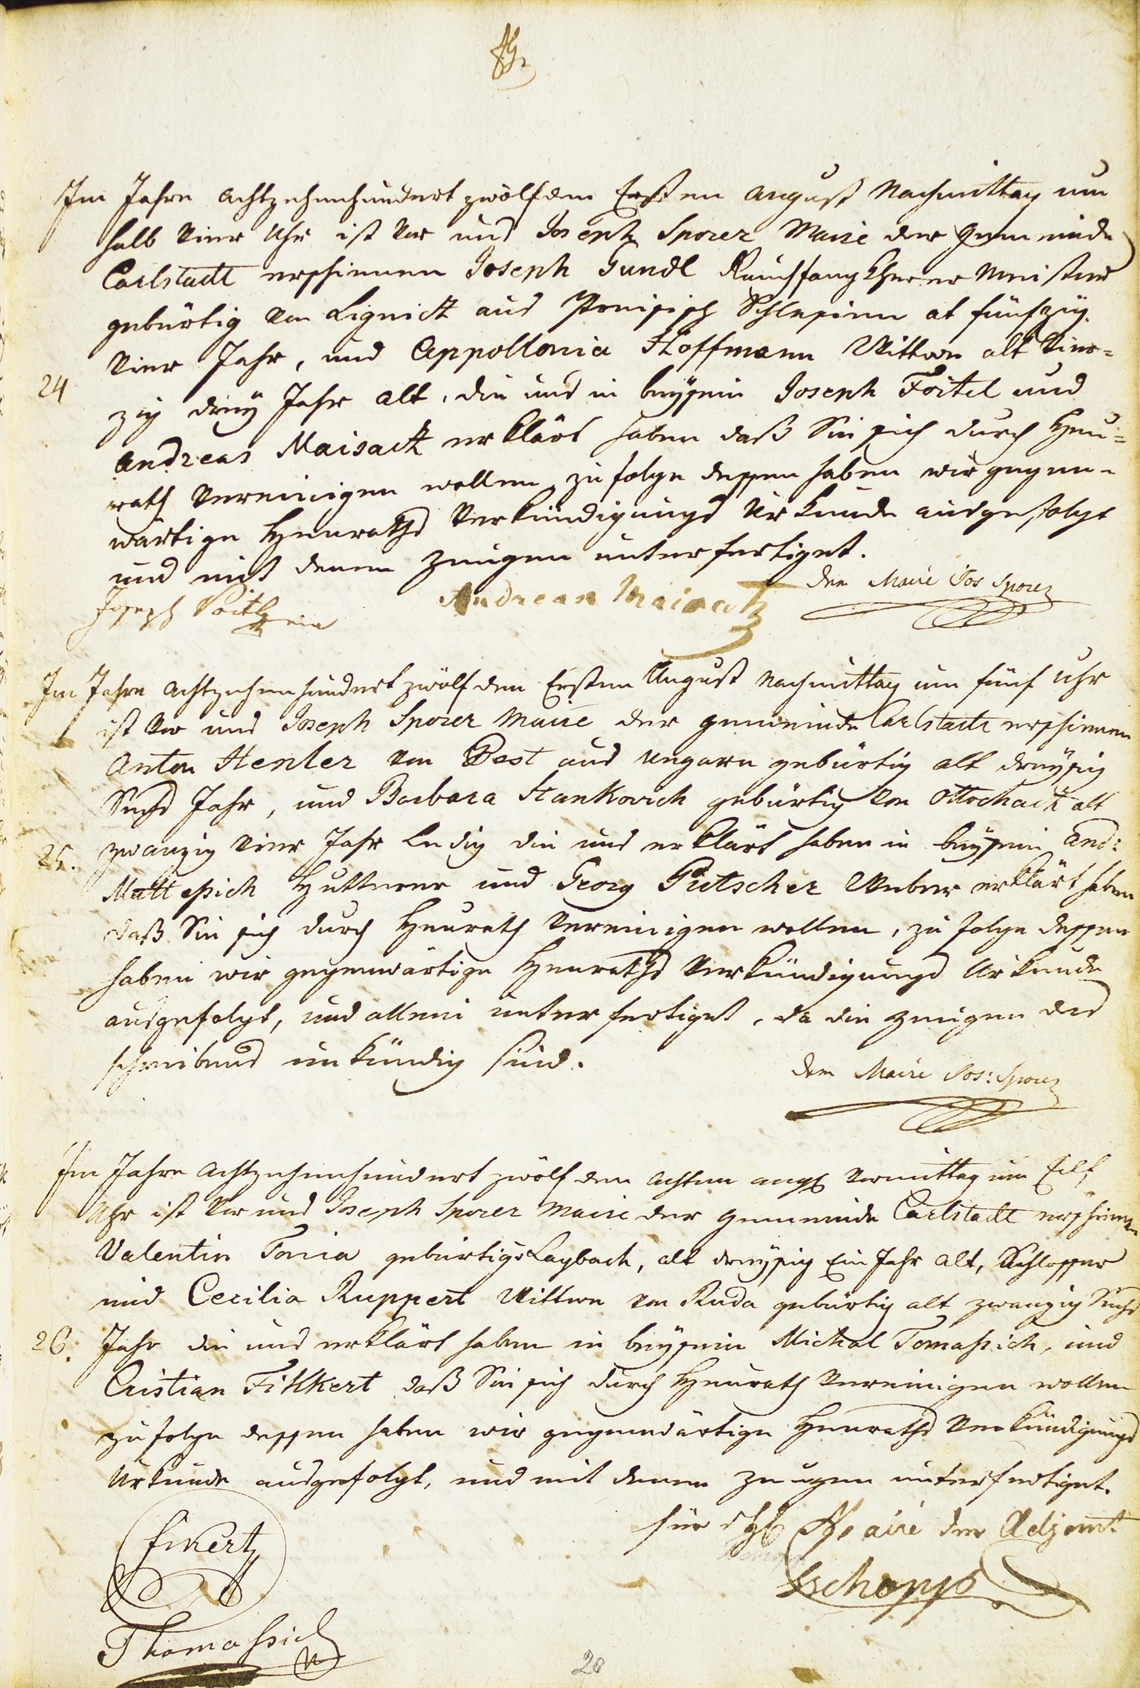 Im Jahre achtzehenhundert zwölf den Ersten August Nachmittag um
halb vier Uhr ist vor uns Joseph Sporer Maire der Gemeinde
Carlstadt erschienen Joseph Gundl Rauchfangkherer Meister
gebürtig von Lignitz aus Preisisch Schlesien at fünfzig
vier Jahr, und Appollonia Hoffmann Wittwe alt vier-
24
zig drey Jahr alt, die uns in beysein Joseph Foitel und
Andreas Maisack erklärt haben daß Sie sich durch Heu-
rath vereinigen wollen, zu folge dessen haben wir gegen-
wärtige Heuraths Verkündigungs Urkunde ausgefolgt
und mit denen Zeugen unterfertiget.
Joseph
Andreas Maisatz
der Maire Jos Sporer
Im Jahre achtzehenhundert zwölf den Ersten August Nachmittag um fünf Uhr
ist vor uns Joseph Sporer Maire der Gemeinde Carlstadt erschienen
Anton Henler von Pest aus Ungarn gebürtig alt dreysig
Sechs Jahr, und Barbara Stankovich gebürtig von Ottochatz alt
25.
zwanzig vier Jahr ledig die uns erklärt haben in beysein And:
Mattessich Hutterer und Georg Putscher Weber erklärt haben
daß Sie sich durch Heurath vereinigen wollen, zu folge dessen
haben wir gegenwärtige Heuraths Verkündigungs Urkunde
ausgefolgt, und allein unterfertiget, da die Zeugen des
schreibens unkündig sind.
der Maire Jos: Sporer
Im Jahre achtzehenhundert zwölf den achten aug Vormittag um Eilf
Uhr ist vor uns Joseph Sporer Maire der Gemeinde Carlstadt erschienen
Valentin Tonia gebürtig Laybach, alt dreysig Ein Jahr alt, Schlosser
und Cecilia Ruppert Wittwe von Ruda gebürtig alt zwanzig Sechs
26.
Jahr die uns erklärt haben in beysein Michal Tomassich, und
Cristian Fikkert daß Sie sich durch Heurath vereinigen wollen
zu folge dessen haben wir gegenwärtige Heuraths Verkündigungs
Urkunde ausgefolgt, und mit denen Zeugen unterfertiget.
für Maire der Adjont
Fikertz
Thomassich
20